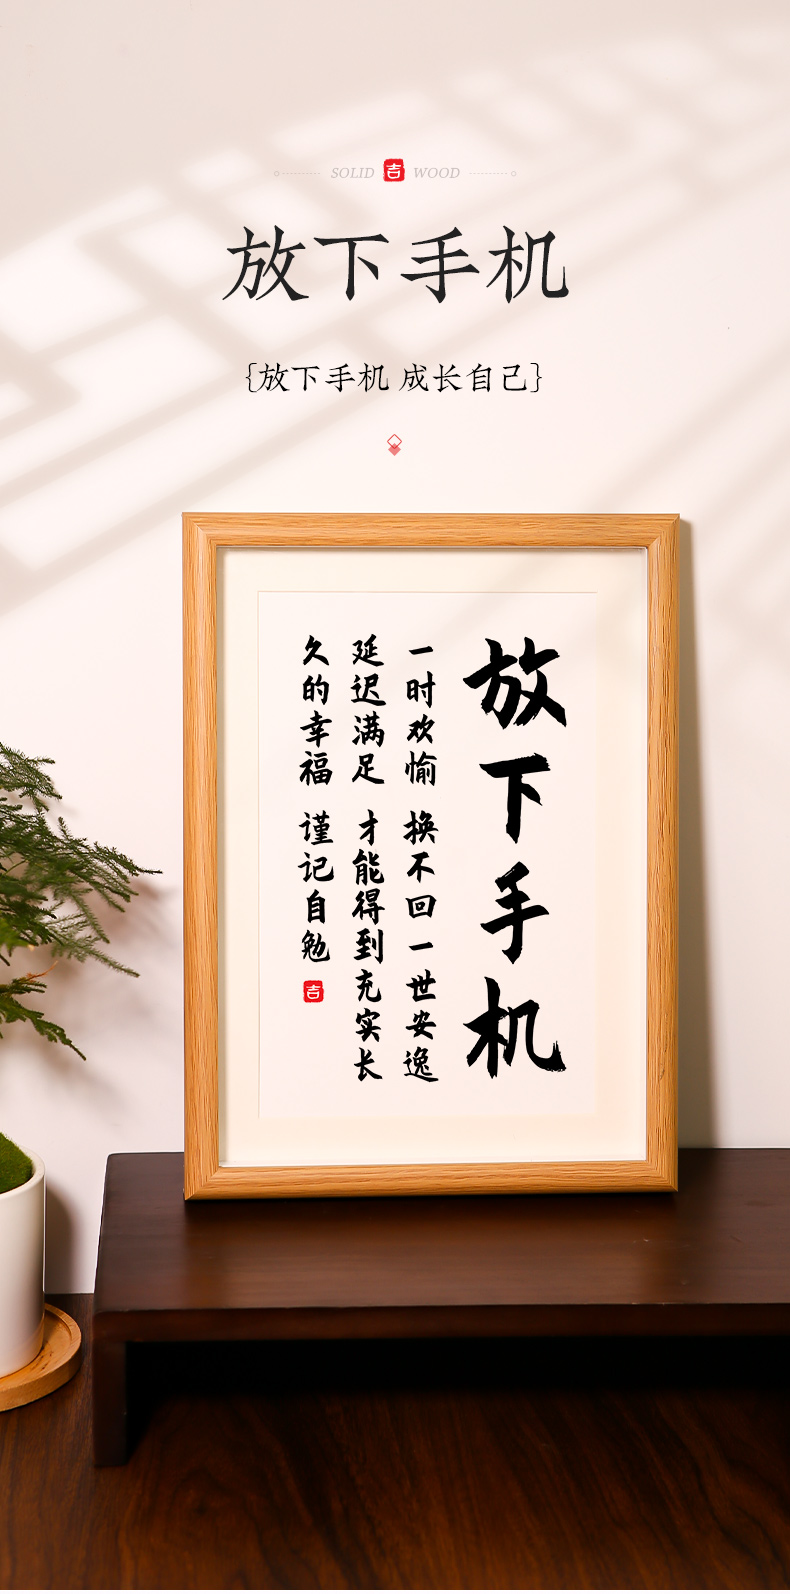 SOLID 吉 WOOD
放下手机
{放下手机 成长自己}
放下手机
一时欢愉 换不回一世安逸
延迟满足 才能得到充实长
久的幸福 谨记自勉
吉